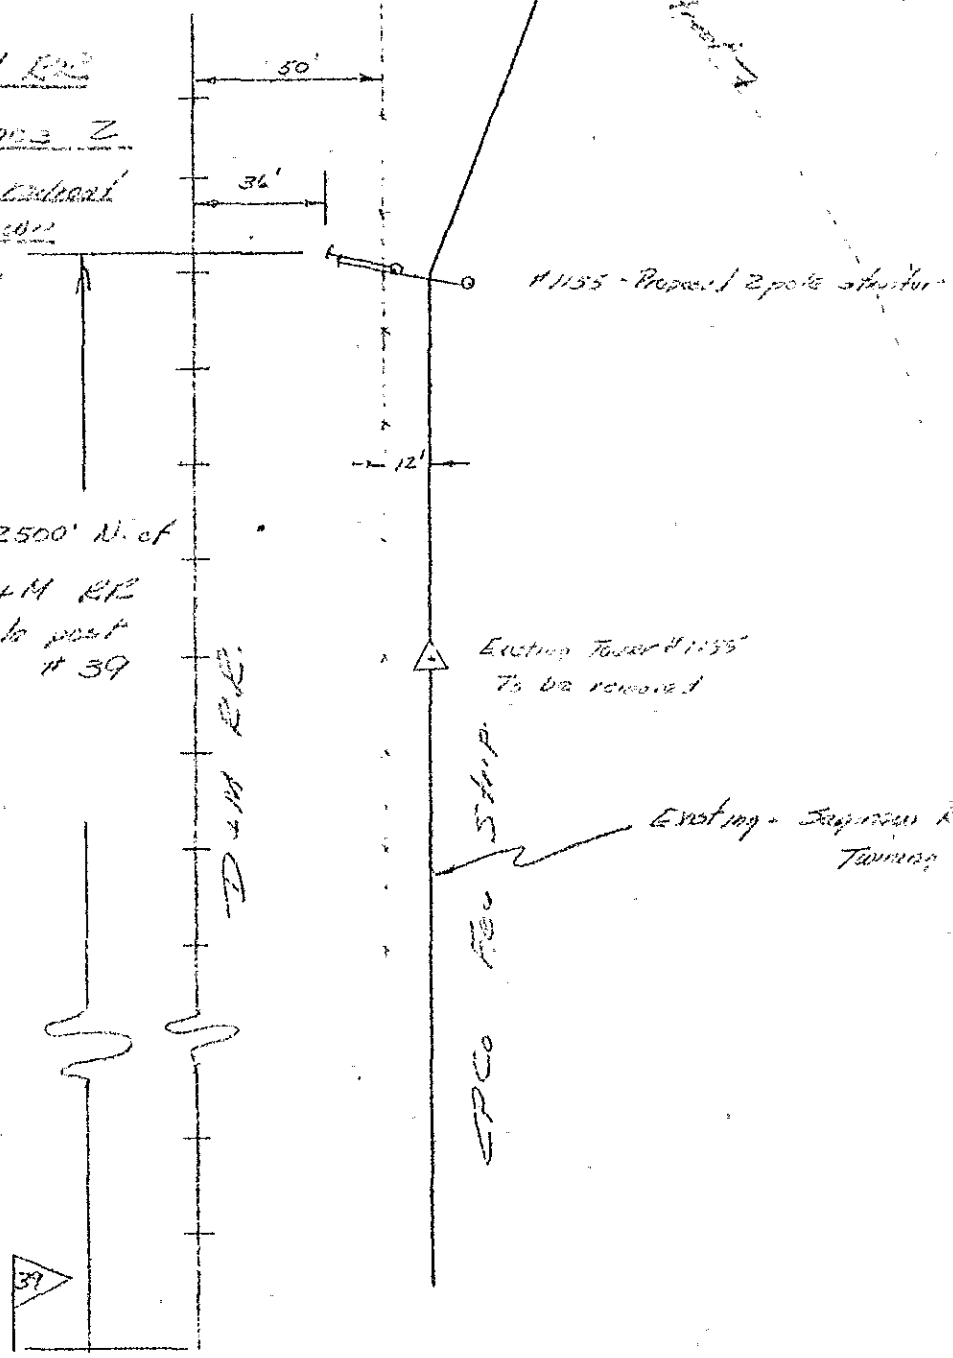 RR
50'
36'
#1155 - Proposed 2 pole
12'
2500' N. of
+M RR
post
# 39
D+M R.R.
Existing Tower #1155
To be removed
CPCo Fee Strip
Existing - Saginaw R
39